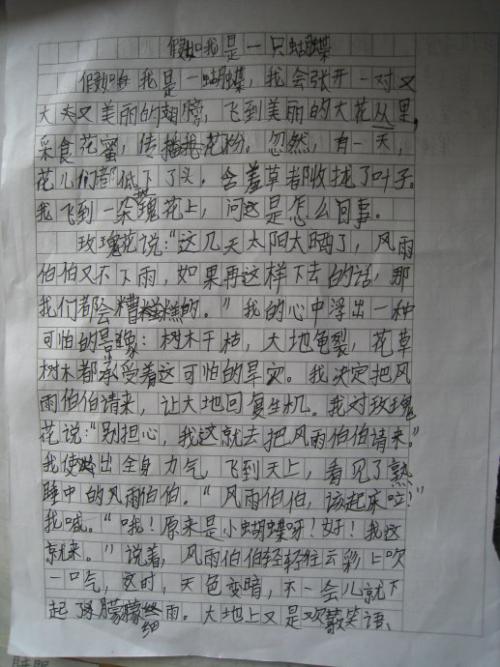 假如我是一只蝴蝶
假如我是一蝴蝶，我会张开一对又
大又美丽的翅膀，飞到美丽的大花丛里，
采食花蜜，传播花粉。忽然，有一天，
花儿们都低下了头，含羞草都收拢了叶子。
我飞到一朵玫瑰花上，问这是怎么回事。
玫瑰花说：“这几天太阳大晒了，风雨
伯伯又不下雨，如果再这样下去的话，那
我们都会糟糕的。”我的心中浮出一种
可怕的景象：树木干枯，大地龟裂，花草
树木都承受着这可怕的旱灾。我决定把风
雨伯伯请来，让大地回复生机。我对玫瑰
花说：“别担心，我这就去把风雨伯伯请来。”
我使出全身力气飞到天上，看见了熟
睡中的风雨伯伯。“风雨伯伯，该起床啦！”
我喊。“哦！原来是小蝴蝶呀！好！我这
就来。”说着，风雨伯伯轻轻往云彩上吹
一口气，及时，天色变暗，不一会儿就下
起了朦朦细雨。大地上又是欢歌笑语、